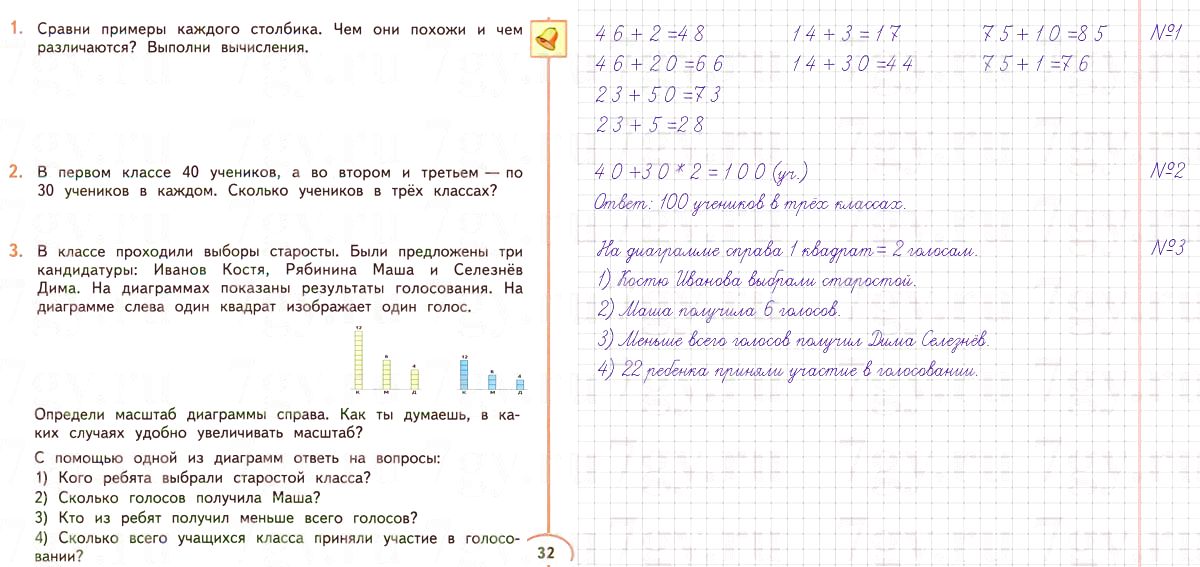 1. Сравни примеры каждого столбика. Чем они похожи и чем
различаются? Выполни вычисления.
2. В первом классе 40 учеников, а во втором и третьем — по
30 учеников в каждом. Сколько учеников в трёх классах?
3. В классе проходили выборы старосты. Были предложены три
кандидатуры: Иванов Костя, Рябинина Маша и Селезнёв
Дима. На диаграммах показаны результаты голосования. На
диаграмме слева один квадрат изображает один голос.
12 6 4 12 6 4
К М Д К М Д
Определи масштаб диаграммы справа. Как ты думаешь, в ка-
ких случаях удобно увеличивать масштаб?
С помощью одной из диаграмм ответь на вопросы:
1) Кого ребята выбрали старостой класса?
2) Сколько голосов получила Маша?
3) Кто из ребят получил меньше всего голосов?
4) Сколько всего учащихся класса приняли участие в голосо-
вании?
32
46+2=48 14+3=17 75+10=85 №1
46+20=66 14+30=44 75+1=76
23+50=73
23+5=28
40+30*2=100 (уч.) №2
Ответ: 100 учеников в трёх классах.
На диаграмме справа 1 квадрат = 2 голосам. №3
1) Костю Иванова выбрали старостой.
2) Маша получила 6 голосов.
3) Меньше всего голосов получил Дима Селезнёв.
4) 22 ребенка приняли участие в голосовании.